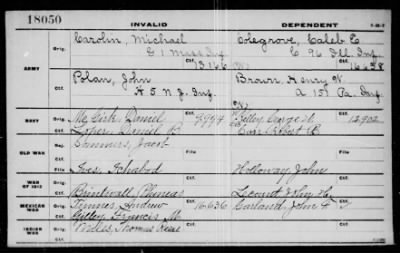 18050
INVALID
DEPENDENT
ARMY
Orig.
Carolin, Michael
Colegrove, Caleb E
G 1 Mass Inf.
C 96 Ill. Inf.
Ctf.
13166
16638
Orig.
Polan, John
Brown, Henry W.
H 5 N. J. Inf.
A 151 Pa. Inf.
Ctf.
NAVY
Orig.
Mc Girk, Daniel
9994
Kelley, George
12902
Ctf.
Loper, Daniel B
Robert B.
OLD WAR
Sommers, Jacob
File
File
Ives, Ichabod
Holloway, John
Ctf.
WAR OF 1812
Orig.
Brintwall, Phineas
John H.
Ctf.
MEXICAN WAR
Orig.
Andrew
16636
Garland, John
Ctf.
Gilley, Francis M.
INDIAN WAR
Orig.
Thomas
Ctf.